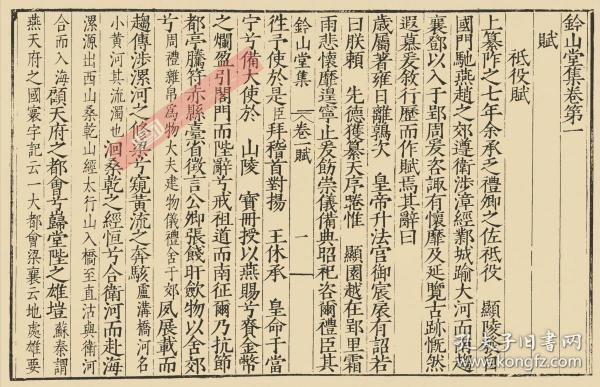 鈐山堂集卷第一
賦
祗役賦
上纂阼之七年余承乏禮卿之佐祗役 顯陵發自
國門馳燕趙之郊遵衛涉漳經鄴城踰大河而
襄鄧以入于郢周爰咨諏有懷靡及延覽古跡慨然
遐慕爰敘行歷而作賦焉其辭曰
歲屬著雍日離鶉次 皇帝升法宮御宸扆有詔若
曰朕賴 先德獲纂天序睠惟 顯園越在郢里霜
雨悲懷靡遑寧止爰飭崇儀備典昭祀咨爾禮臣其
鈐山堂集 卷一賦 一
往予使於是臣拜稽首對揚 王休承 皇命于當
宁兮備大使於 山陵 寶冊授以燕賜兮賚金幣
之爛盈引閤門而陛辭兮戒祖道而南征爾乃抗節
都亭騰符赤縣臺省徵言公卿張餞飲物以舍郊
兮周禮雜帛為物大夫建物儀禮舍于郊 夙展載而
趨傳涉漯河之脩梁兮窺黃流之奔駭 盧溝橋河名
小黃河其流濁也 洄桑乾之經恒兮合衛河而赴海
漯源出西山桑乾山經太行山入橋至直沽與衛河
合而入海 天府之都會兮巋堂陛之雄塏 蘇秦謂
燕天府之國寰宇記云一大都會梁襄云地處雄要
孔夫子旧书网